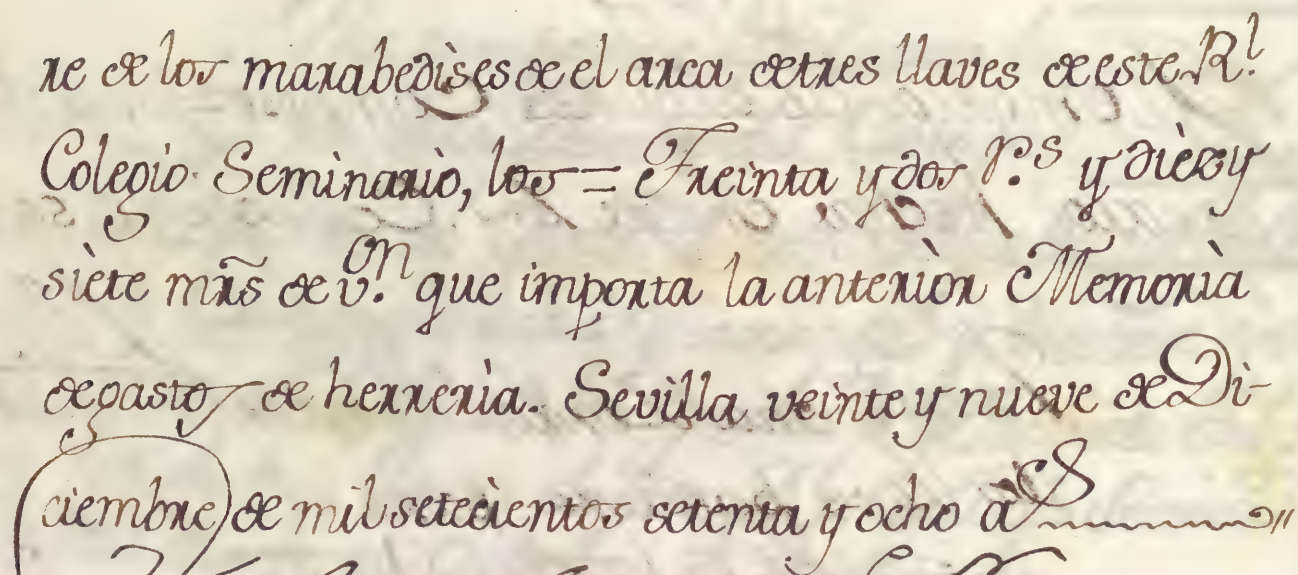 re de los marabedìses de el arca de tres llaves de este R.l
Colegio Seminario, los = Treinta y dos r.s y diez y
siete mr̃s de v.on que importa la anteriòr Memorìa
de gastos de herrerìa. Sevilla veinte y nueve de Di-
ciembre de mil setecientos setenta y ocho à.s